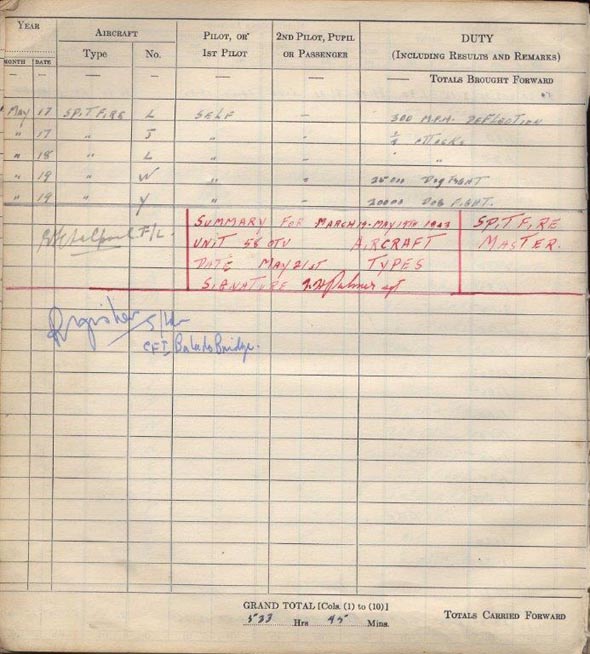 YEAR AIRCRAFT PILOT, OR 1ST PILOT 2ND PILOT, PUPIL OR PASSENGER DUTY (INCLUDING RESULTS AND REMARKS)
MONTH DATE Type No.
— — — — — — — TOTALS BROUGHT FORWARD
MAY 17 SPITFIRE L SELF — 300 M.P.H. DEFLECTION
" 17 " J " — attacks
" 18 " L " — " "
" 19 " W " — 25000 DOG FIGHT
" 19 " Y " — 20000 DOG FIGHT.
F/L.
SUMMARY FOR MARCH 14-MAY 19TH 1943 SPITFIRE
UNIT 58 OTU AIRCRAFT MASTER.
DATE MAY 21st TYPES
SIGNATURE Palmer sgt
S/Ldr
CFI Balado Bridge.
GRAND TOTAL [Cols. (1) to (10)]
533 Hrs 45 Mins.
TOTALS CARRIED FORWARD